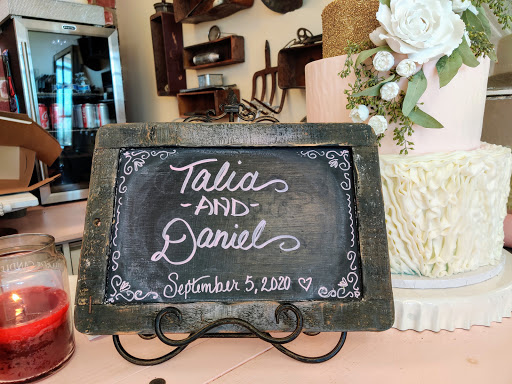 Talia
-AND-
Daniel
September 5, 2020 ♡